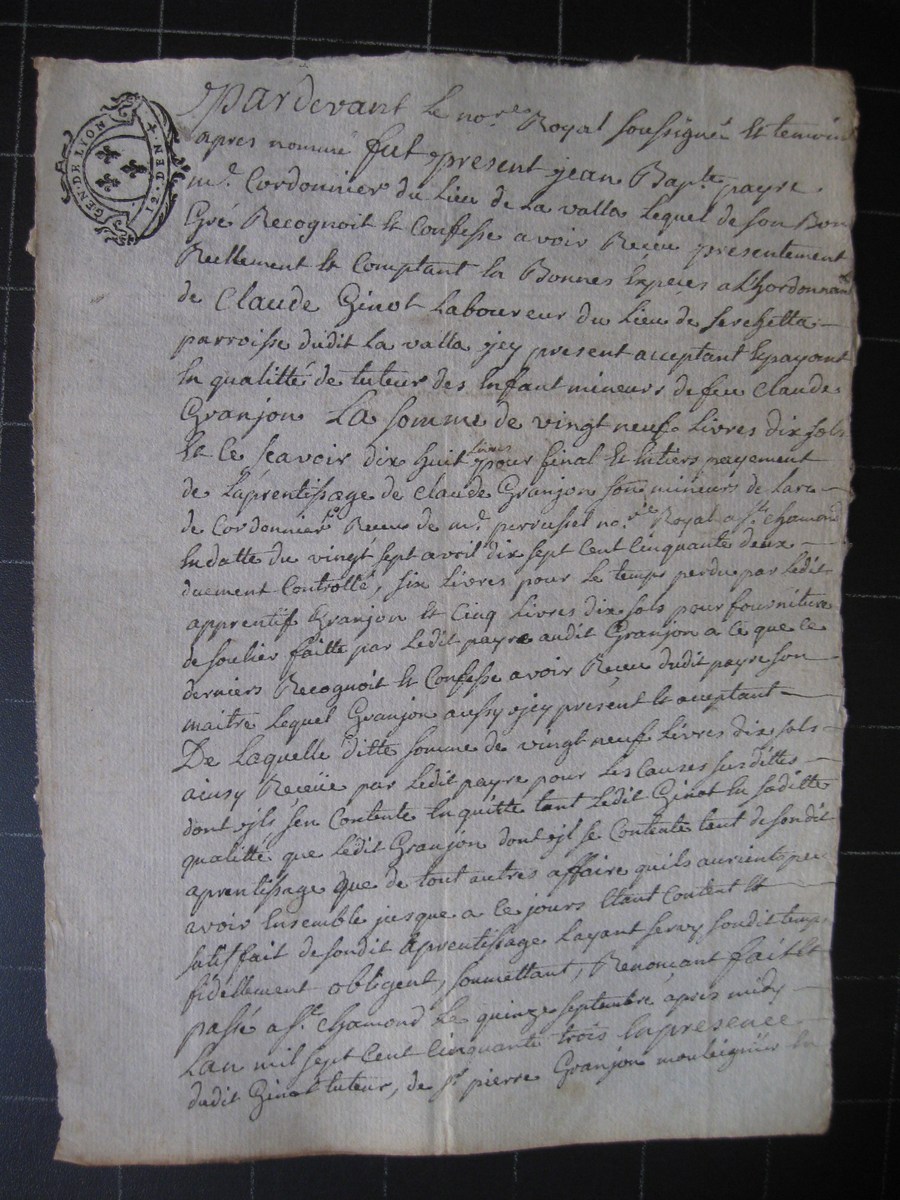 GEN·DE LYON·
12·DEN·
Pardevant le no.re Royal soussigné Et temoins
apres nommé fut present jean Bap.te payre
m.e Cordonnier du Lieu de La valla Lequel de son Bon
Gré Recognoit Et Confesse avoir Receu presentement
Reellement Et Comptant En Bonnes Expeces a L'hordonnance
de Claude Ginot Laboureur du Lieu de serchetta
parroisse dudit La valla jey present acceptant Et payant
En qualitté de tuteur des Enfant mineurs de feu Claude
Granjon La somme de vingt neuf Livres dix sols
Et Ce scavoir dix huit Livres pour final Et Entiers payement
de L'aprentissage de Claude Granjon son mineurs de Lart
de Cordonnier Receu de m.e perrussel no.re Royal a S.t chamond
En datte du vingt sept avril dix sept Cent Cinquante deux
duement Controllé, six Livres pour Le temps perdu par Ledit
apprentif Granjon Et Cinq Livres dix sols pour fourniture
de soulier faitte par Ledit payre audit Granjon a Ce que Ce
derniers Recognoit Et Confesse avoir Receu dudit payre son
maitre Lequel Granjon aussy jey present Et acceptant
De Laquelle ditte somme de vingt neuf Livres dix sols
ainsy Receüe par Ledit payre pour Les Causes susdittes
dont jls s'en Contente En quitte tant Ledit Ginot En saditte
qualitté que Ledit Granjon dont jl se Contente tant de sondit
aprentissage que de tout autres affaire quils aurients peu
avoir Ensemble jusque a Ce jours Etant Content Et
satisfait de sondit aprentissage Layant servy sondit temps
fidellement obligent, soumettant, Renoncant fait Et
passé a S.t chamond Le quinze septembre apres midy
Lan mil sept Cent Cinquante trois En presence
dudit Ginot tuteur, de S.r pierre Granjon mouleignier En